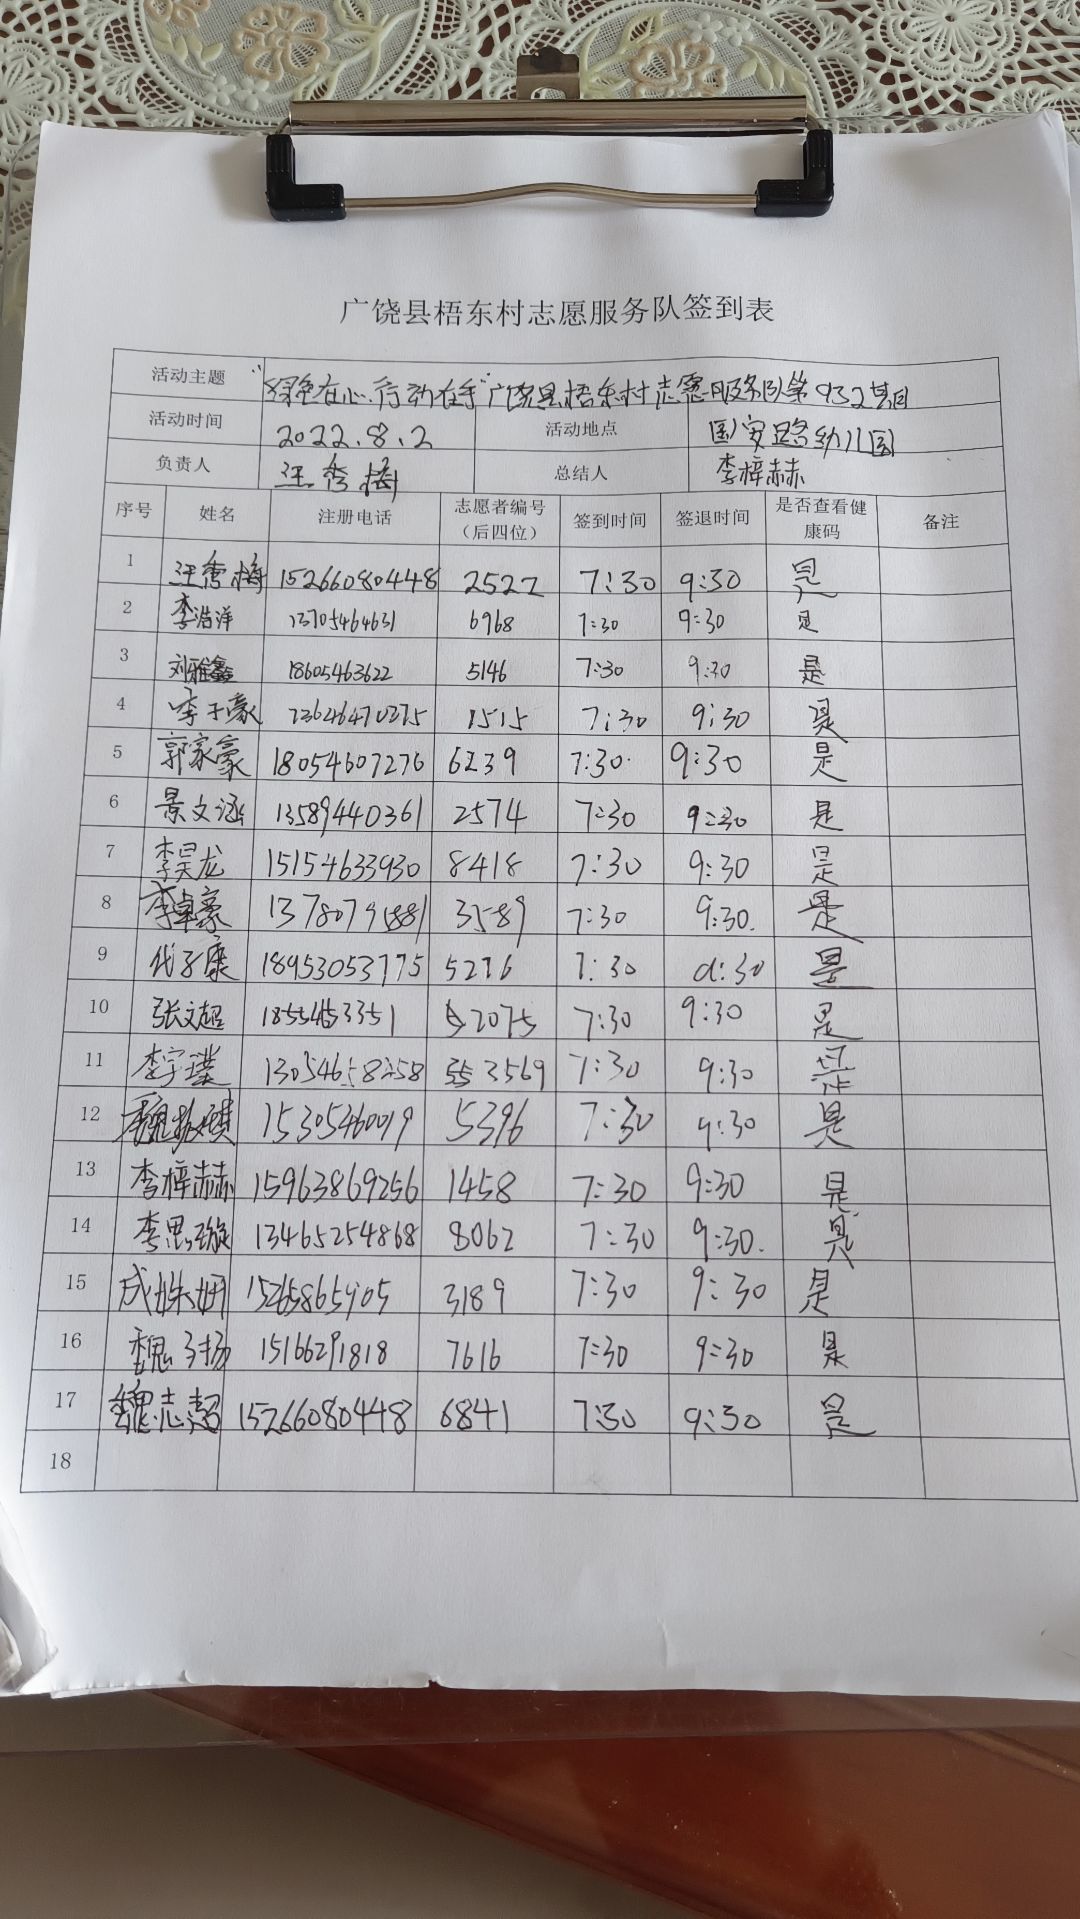 广饶县梧东村志愿服务队签到表
活动主题 "绿色在心.行动在手"广饶县梧东村志愿服务队第932期
活动时间 2022.8.2 活动地点 国安路幼儿园
负责人 汪秀梅 总结人 李梓赫
序号 姓名 注册电话 志愿者编号（后四位） 签到时间 签退时间 是否查看健康码 备注
1 汪秀梅 15266080448 2522 7:30 9:30 是
2 李浩洋 13705464631 6968 7:30 9:30 是
3 刘雅鑫 18605463622 5146 7:30 9:30 是
4 李子豪 13646470275 1515 7:30 9:30 是
5 郭家豪 18054607276 6239 7:30 9:30 是
6 景文涵 13589440361 2574 7:30 9:30 是
7 李昊龙 15154633930 8418 7:30 9:30 是
8 李卓豪 13780791881 3589 7:30 9:30 是
9 代子康 18953053775 5276 7:30 9:30 是
10 张文超 2075 7:30 9:30 是
11 李宇璞 3569 7:30 9:30 是
12 15305460019 5396 7:30 9:30 是
13 李梓赫 15963869256 1458 7:30 9:30 是
14 李思璇 13465254868 8062 7:30 9:30 是
15 成姝妍 15265865905 3189 7:30 9:30 是
16 魏子扬 15166291818 7616 7:30 9:30 是
17 魏志超 15266080448 6841 7:30 9:30 是
18